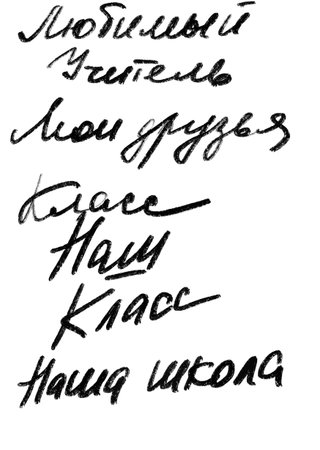 Любимый
Учитель
Мои друзья
Класс
Наш
Класс
Наша школа